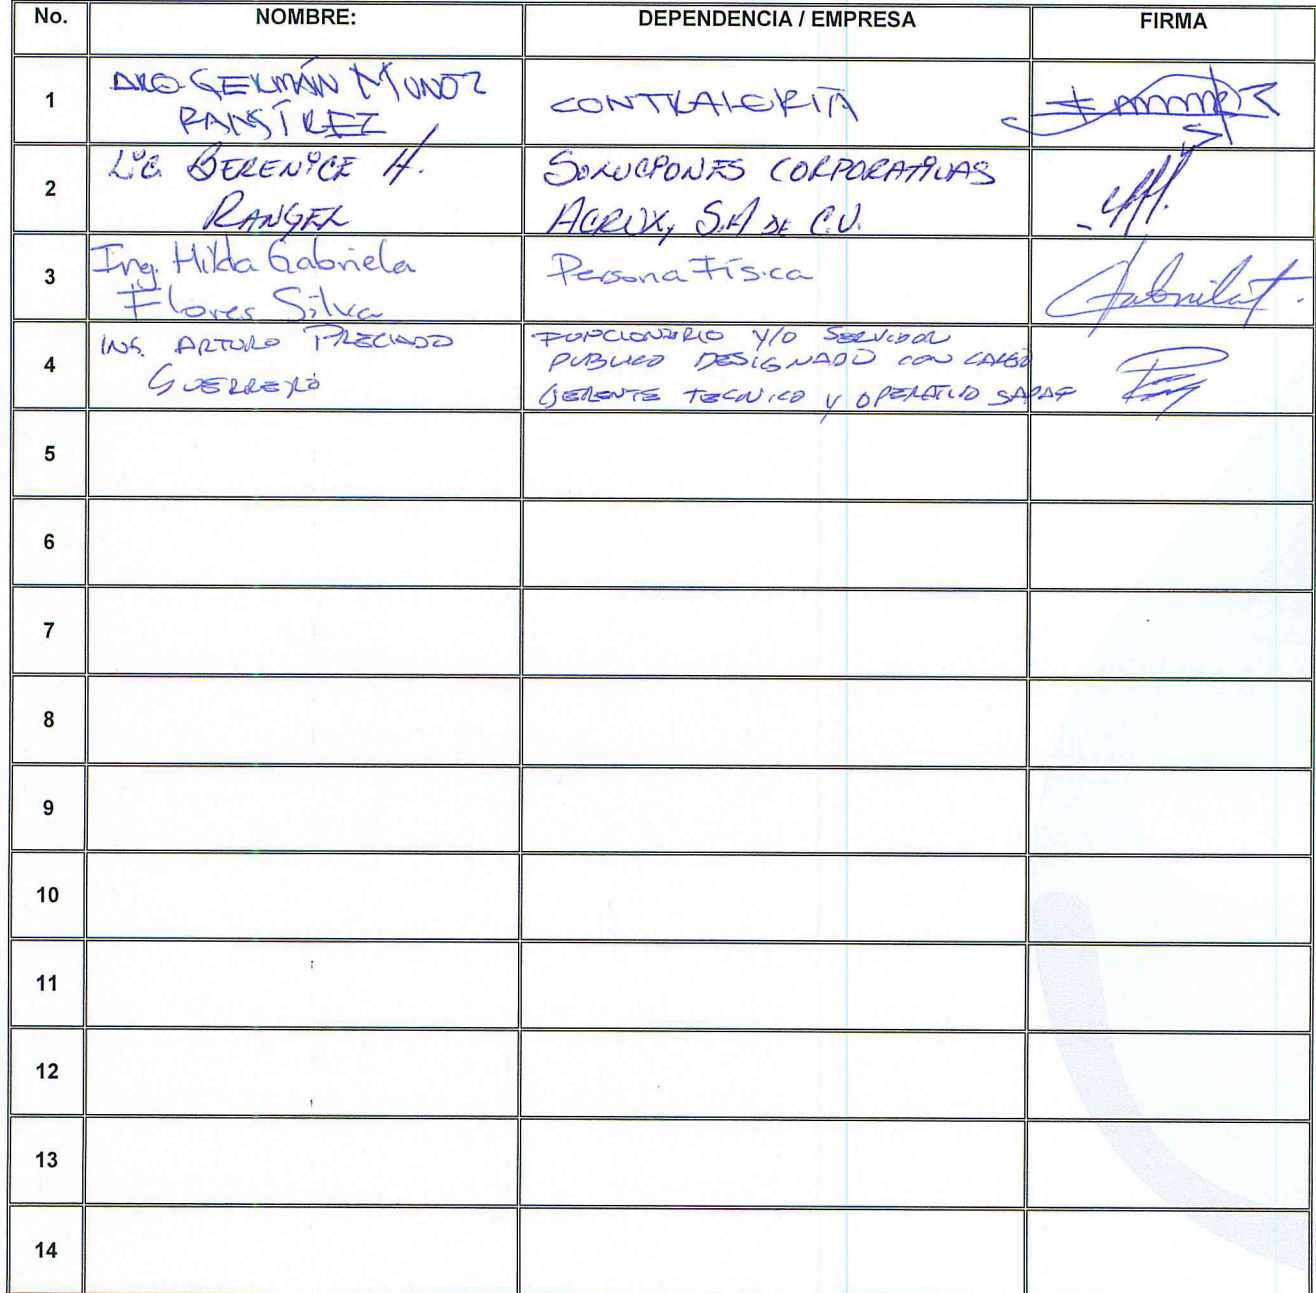 No. NOMBRE: DEPENDENCIA / EMPRESA FIRMA
1 ARQ. GERMÁN MUÑOZ
RAMÍREZ CONTRALORÍA
2 Lic. BERENICE H.
RANGEL
SOLUCIONES CORPORATIVAS
ACRUX, S.A DE C.V.
3 Ing. Hilda Gabriela
Flores Silva
Persona Física
4 ING. ARTURO PRECIADO
GUERRERO
FUNCIONARIO Y/O SERVIDOR
PUBLICO DESIGNADO CON CARGO
GERENTE TECNICO Y OPERATIVO SAPAF
5
6
7
8
9
10
11
12
13
14